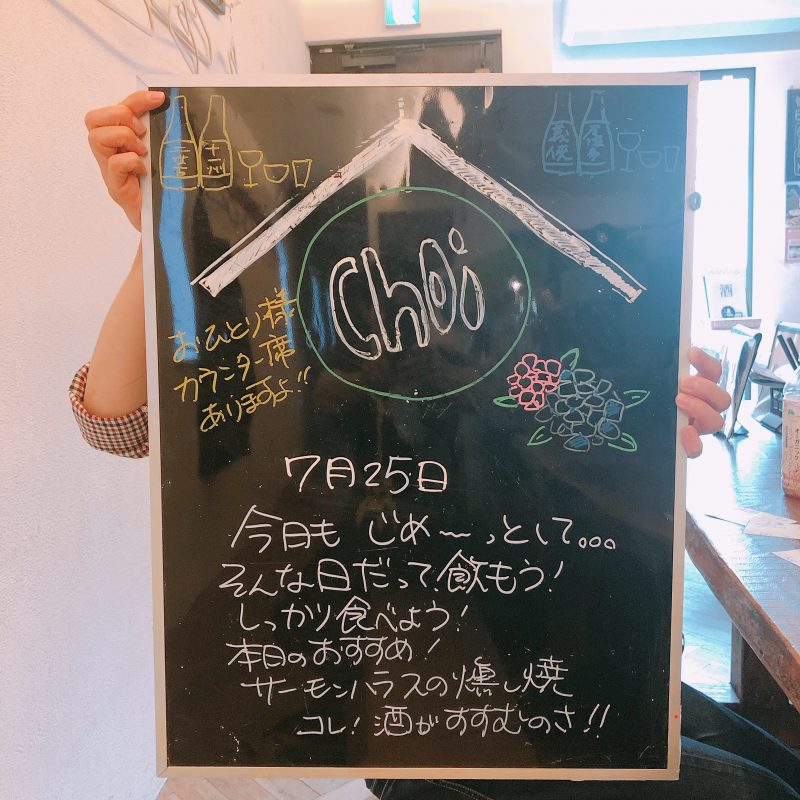 Choi
おひとり様
カウンター席
ありますよ!!
7月25日
今日も じめ〜っとして。。。
そんな日だって飲もう!
しっかり食べよう!
本日のおすすめ!
サーモンハラスの燻し焼
コレ!酒がすすむのさ!!
酒